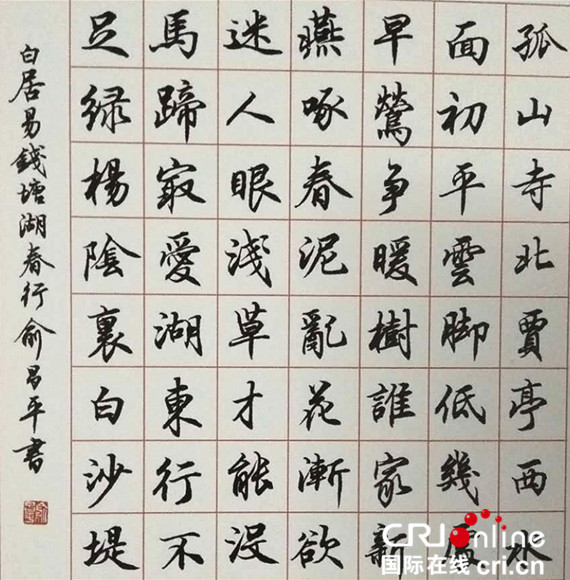 孤山寺北賈亭西水
面初平雲脚低幾
早鶯争暖樹誰家新
燕啄春泥亂花漸欲
迷人眼淺草才能没
馬蹄冣愛湖東行不
足緑楊陰裏白沙堤
白居易錢塘湖春行俞昌平書
CRIonline
国际在线 cri.cn